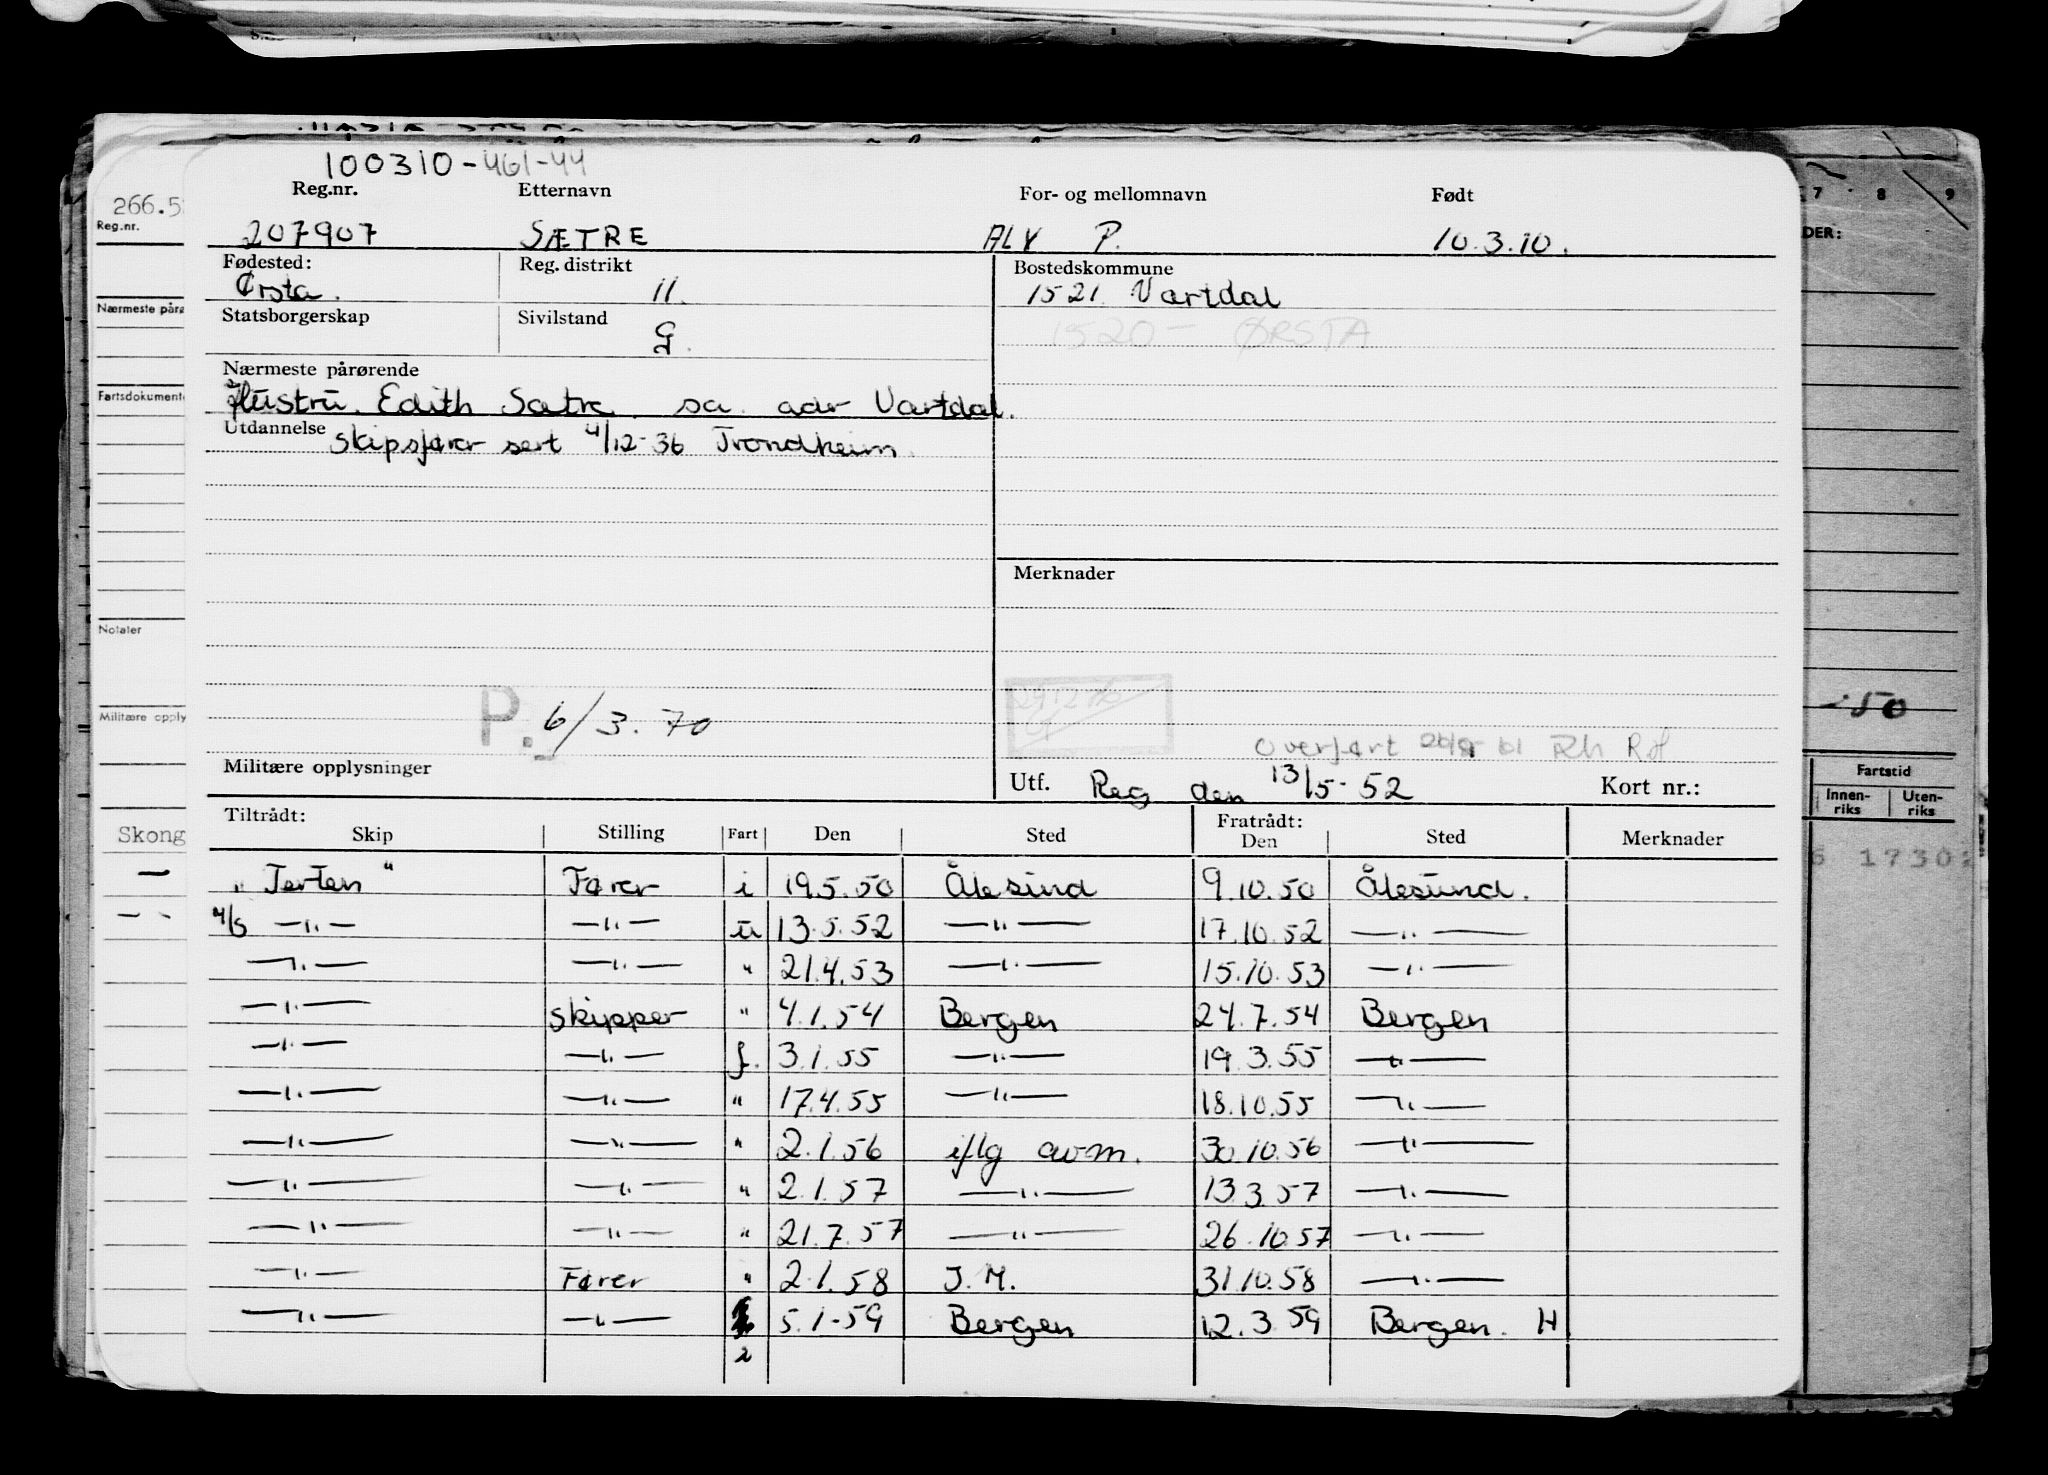 100310-461-44
Reg.nr. Etternavn For- og mellomnavn Født
207907 SÆTRE ALV P. 10.3.10.
Fødested: Reg. distrikt Bostedskommune
Ørsta. 11. 1521 Vartdal
Statsborgerskap Sivilstand 1520- ØRSTA
G.
Nærmeste pårørende
Hustru. Edith Sætre. sa. adr Vartdal.
Utdannelse skipsfører sert 4/12-36 Trondheim.
Merknader
P. 6/3.70
Overført Rh
Militære opplysninger Utf. Reg den 13/5-52 Kort nr.:
Tiltrådt: Fratrådt:
Skip Stilling Fart Den Sted Den Sted Merknader
"Terten" Fører i 19.5.50 Ålesund 9.10.50 Ålesund.
M/S —"— —"— u 13.5.52 —"— 17.10.52 —"—
—"— —"— " 21.4.53 —"— 15.10.53 —"—
—"— skipper " 4.1.54 Bergen 24.7.54 Bergen
—"— —"— f. 3.1.55 —"— 19.3.55 —"—
—"— —"— " 17.4.55 —"— 18.10.55 —"—
—"— —"— " 2.1.56 iflg avm. 30.10.56 —"—
—"— —"— " 2.1.57 —"— 13.3.57 —"—
—"— —"— " 21.7.57 —"— 26.10.57 —"—
—"— Fører " 2.1.58 J.M. 31.10.58 —"—
—"— —"— 5.1-59 Bergen 12.3.59 Bergen. H
2
266.5
Reg.nr.
Nærmeste påre
Fartsdokumente
Notater
Militære opply
Skong
7 8 9
DER:
-50
Fartstid
Innen-riks Uten-riks
6 17302